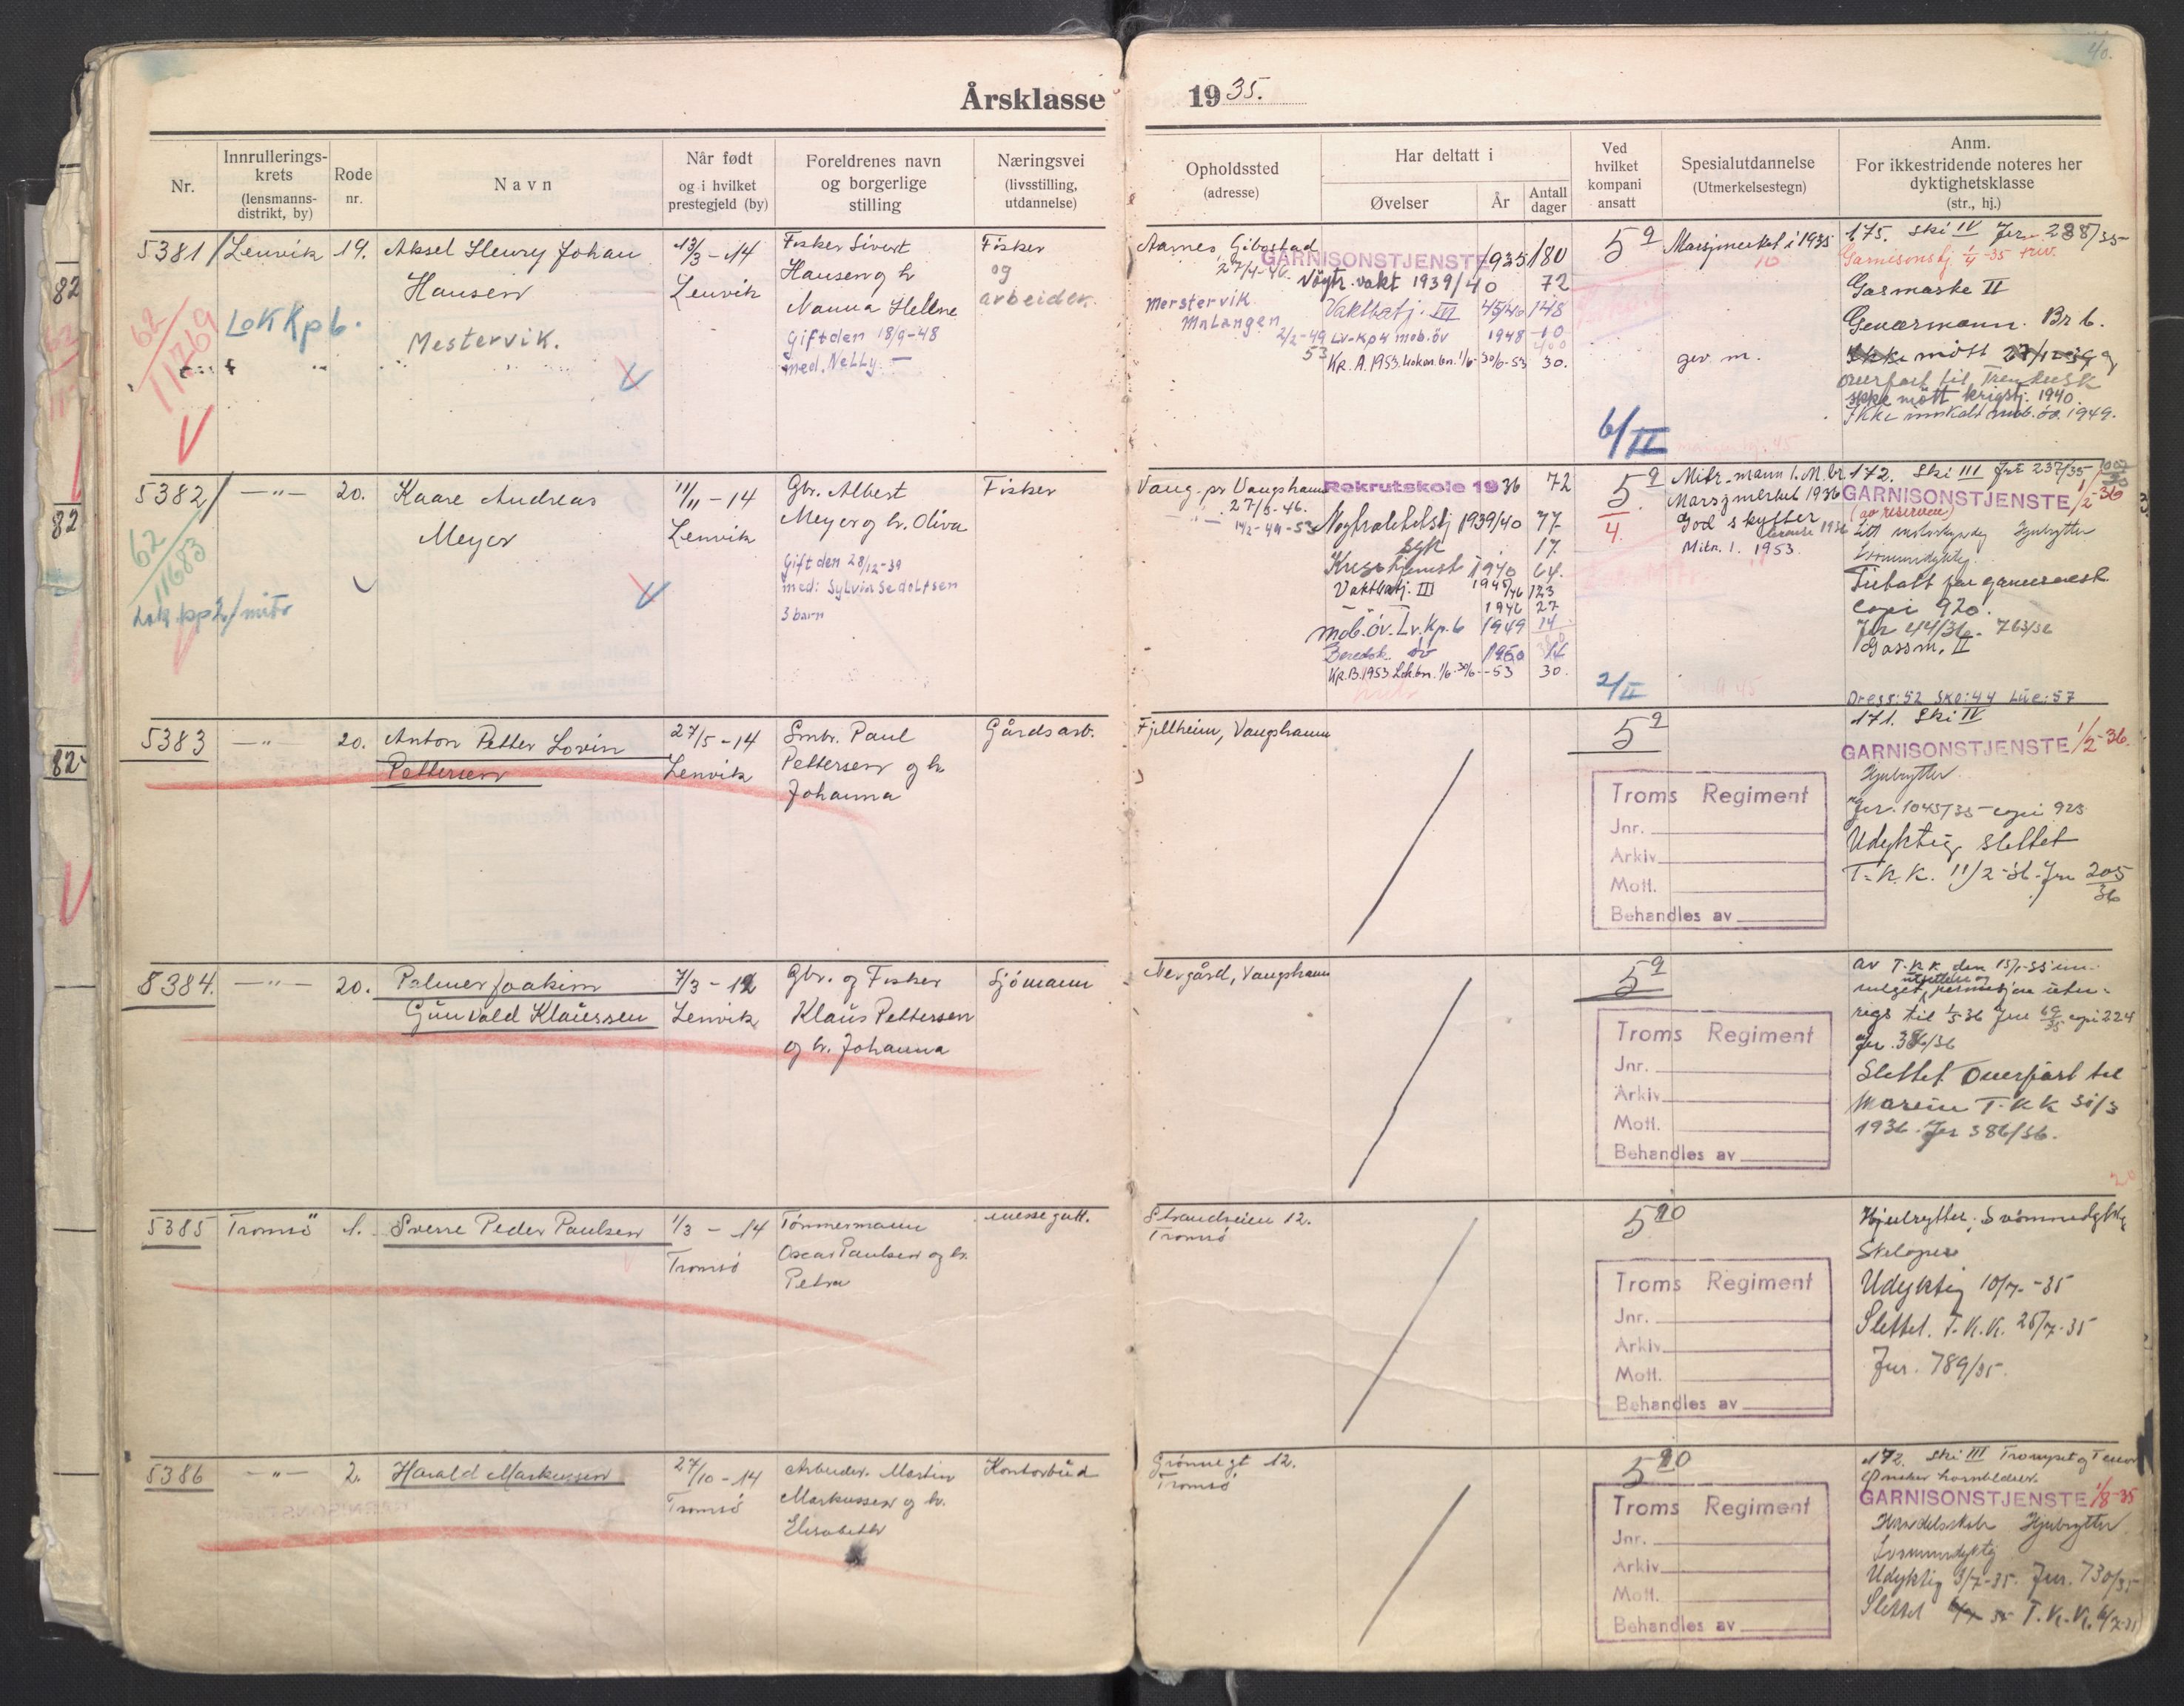 40.
Årsklasse 1935.
Nr.
Innrullerings-
krets
(lensmanns-
distrikt, by)
Rode
nr.
Navn
Når født
og i hvilket
prestegjeld (by)
Foreldrenes navn
og borgerlige
stilling
Næringsvei
(livsstilling,
utdannelse)
Opholdssted
(adresse)
Har deltatt i
Øvelser
År
Antall
dager
Ved
hvilket
kompani
ansatt
Spesialutdannelse
(Utmerkelsestegn)
Anm.
For ikkestridende noteres her
dyktighetsklasse
(str., hj.)
5381
Lenvik
19.
Aksel Henry Johan
Hansen
Mestervik.
LoK Kp 6.
62/11769
13/3-14
Lenvik
Fisker Sivert
Hansen og h
Nanna Hellene
Gift den 18/9-48
med. Nelly. —
Fisker
og
arbeider.
Aarnes, Gibostad
27/4-46.
Merstervik
Malangen
2/2-49
53
GARNISONSTJENSTE 1935 180
Nøytr. vakt 1939/40 72
Vaktbatj. III 45/46 148
Lv-kp 4 mob. öv 1948 10
KR. A. 1953. Lokon bn. 1/6-30/6-53 30.
5 9
6/II
Marsjmerket i 1935
10
gev. m.
175. Ski IV Jnr 238/35
Garnisonstj. 1/4-35 friv.
Gasmaske II
Geværmann. Br 6.
Ikke mött
overført til
ikke mött krigstj. 1940.
Ikke innkalt mob. öv. 1949.
5382
— " —
20.
Kaare Andreas
Meyer
62/11683
Lok. kp 2/mitr
11/11-14
Lenvik
Gbr. Albert
Meyer og h. Oliva
Gift den 28/12-39
med: Sylvia Sedoltsen
3 barn
Fisker
Vang. pr Vangshamn
27/5-46.
14/2-49-53
Rekrutskole 1936 72
Nøytralitetstj 1939/40 77
17.
Krigstjenest 1940 64.
Vaktbatj. III 1945/46 123
1946 27
mob. öv. Lv. Kp. 6 1949 14
Beredsk. öv 1950 14
KR. B. 1953 Lok. bn. 1/6-30/6-53 30.
5 9
4.
2/II
Mitr. mann 1. M. br
Marsjmerket 1936
God skytter
Mitr. 1. 1953.
172. Ski III Jnr 237/35
GARNISONSTJENSTE 1/2-36
(av reserven)
Hjulrytter
Svømmedyktig.
copi 920.
Jnr 44/36. 763/36
Gassm. II
Dress: 52 Sko: 44 Lue: 57
5383
— " —
20.
Anton Petter Lorin
Pettersen
27/5-14
Lenvik
Smbr. Paul
Pettersen og h.
Johanna
Gårdsarb.
Fjellheim, Vangshamn
5 9
Troms Regiment
Jnr.
Arkiv
Mott.
Behandles av
171. Ski IV
GARNISONSTJENSTE 1/2-36.
Hjulrytter
Jnr. 1045/35 copi 923
Udyktig slettet
T. K. K. 11/2-36. Jnr 205/36
8384.
— " —
20.
Palmer Joakim
Gunvald Klaussen
7/3-12
Lenvik
Gbr. og Fisker
Klaus Pettersen
og h. Johanna
Sjömann
Nergård, Vangshamn
5 9
Troms Regiment
Jnr.
Arkiv
Mott.
Behandles av
av T. K K den 15/1-35 inn-
vilget utsettelse og permisjon uten-
rigs til 1/5 36 Jnr 69/35 copi 224
Jnr. 386/36
Slettet Overfört til
Marine T. K K 30/3
1936. Jnr 386/36.
20
5385
Tromsö
1.
Sverre Peder Paulsen
1/3-14
Tromsö
Tömmermann
Oscar Paulsen og h.
Petra
messegutt.
Strandveien 12.
Tromsö
5 10
Troms Regiment
Jnr.
Arkiv
Mott.
Behandles av
Hjulrytter. Svömmedyktig
Skiløper
Udyktig 10/7-35
Slettet. T. K. K. 25/7-35
Jnr. 789/35.
5386
— " —
2.
Harald Markussen
27/10-14
Tromsö
Arbeider. Martin
Markussen og h.
Elisabeth
Kontorbud
Grönnegt 12.
Tromsö
5 10
Troms Regiment
Jnr.
Arkiv
Mott.
Behandles av
172. Ski III Trompet og Tenor
Ønsker hornblåser.
GARNISONSTJENSTE 1/8-35
Handelsskole Hjulrytter
Svømmedyktig
Udyktig 3/7-35. Jnr. 730/35
Slettet T. K. K. 6/7-35
82
82
82